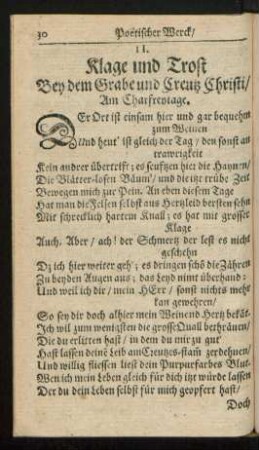 30 Poëtischer Werck/
II.
Klage und Trost
Bey dem Grabe und Creutz Christi/
Am Charfreytage.
DEr Ort ist einsam hier und gar bequehm
zum Weinen
Und heut' ist gleich der Tag / den sonst an
trawrigkeit
Kein andrer übertrift; es seuftzen hier die Haynen/
Die Blätter-losen Bäum'/ und die itzt trübe Zeit
Bewegen mich zur Pein. An eben diesem Tage
Hat man die Felsen selbst aus Hertzleid bersten sehn
Mit schrecklich hartem Knall; es hat mit grosser
Klage
Auch. Aber / ach! der Schmertz der lest es nicht
geschehn
Dz ich hier weiter geh'; es dringen schõ die Zähren
Zu beyden Augen aus; das Leyd nimt überhand:
Und weil ich dir / mein HErr / sonst nichts mehr
kan gewehren/
So sey dir doch alhier mein Weinend Hertz bekãt.
Ich wil zum wenigsten die grosse Quall bethränen/
Die du erlitten hast / in dem du mir zu gut
Hast lassen deinē Leib am Creutzes-stam̃ zerdehnen/
Und willig fliessen liest dein Purpurfarbes Blut.
Wen ich mein Leben gleich für dich itzt würde lassen
Der du dein Leben selbst für mich geopfert hast/
Doch